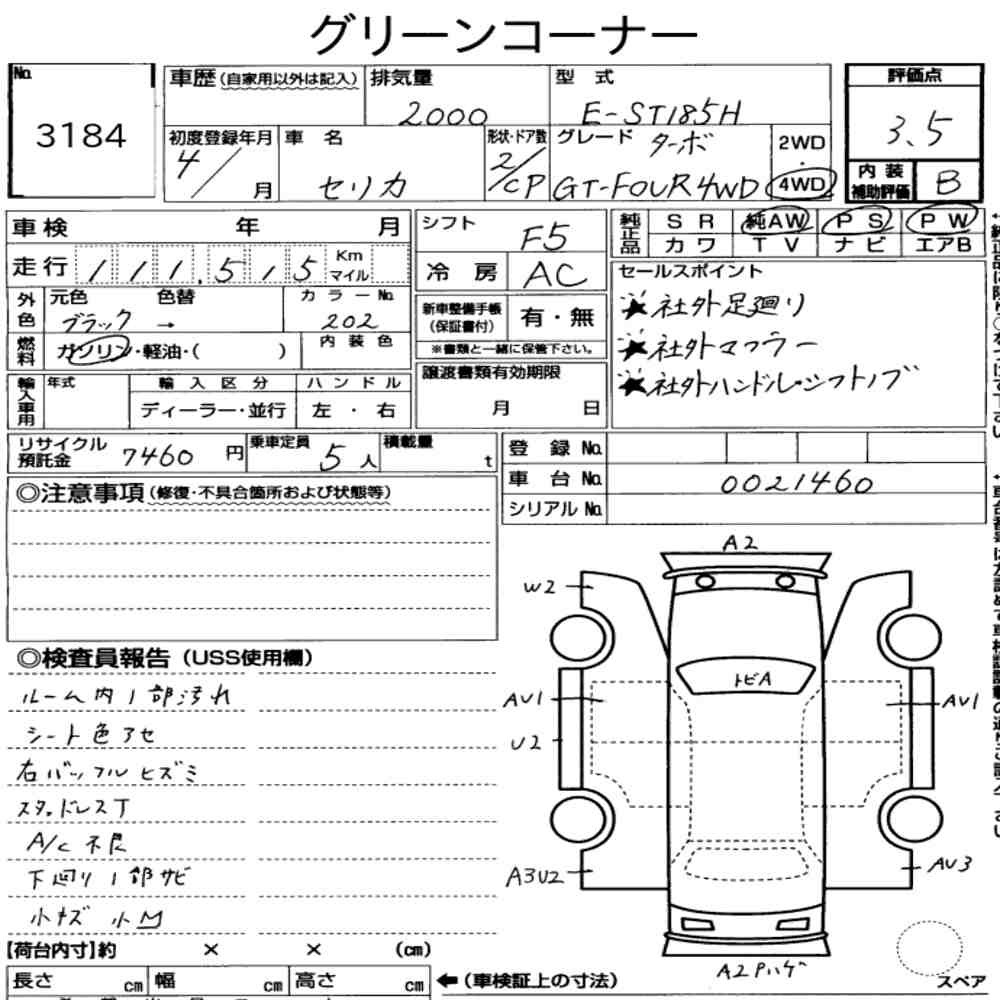 グリーンコーナー
No.
3184
車歴(自家用以外は記入)
排気量
2000
型 式
E-ST185H
評価点
3.5
内装
補助評価
B
初度登録年月
4/ 月
車 名
セリカ
形状・ドア数
2/CP
グレード ターボ
GT-FOUR4WD
2WD
・
4WD
車検 年 月
走行 111,515 Km マイル
外色
元色 色替
ブラック →
カラーNo.
202
燃料
ガソリン・軽油・( )
内装色
輸入車用
年式
輸入区分
ディーラー・並行
ハンドル
左・右
シフト
F5
冷房 AC
新車整備手帳
(保証書付)
有・無
※書類と一緒に保管下さい。
譲渡書類有効期限
月 日
純正品
SR 純AW PS PW
カワ TV ナビ エアB
セールスポイント
★社外足廻り
★社外マフラー
★社外ハンドル・シフトノブ
リサイクル
預託金 7460 円
乗車定員
5人
積載量
t
登録No.
車台No. 0021460
シリアルNo.
◎注意事項(修復・不具合箇所および状態等)
◎検査員報告(USS使用欄)
ルーム内1部汚れ
シート色アセ
右バッフルヒズミ
スタッドレスT
A/C不良
下廻り1部サビ
小キズ 小凹
A2
W2
トビA
AU1
AU1
U2
A3U2
AU3
A2Pハゲ
スペア
【荷台内寸】約 × × (cm)
長さ cm 幅 cm 高さ cm
←(車検証上の寸法)